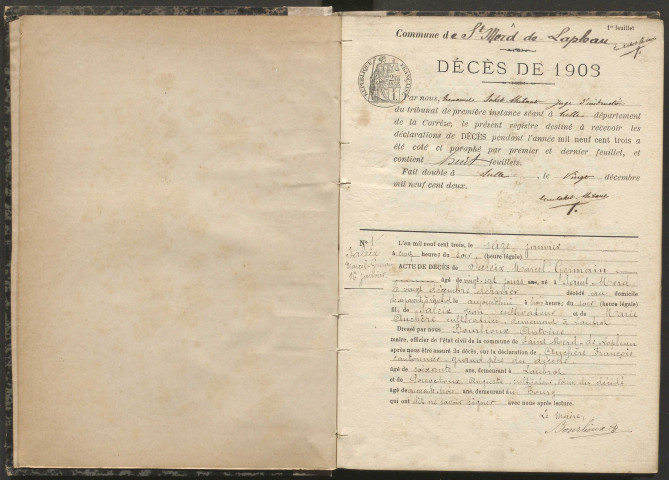 1er feuillet
Commune de St Merd de Lapleau
DÉCÈS DE 1903
RÉPUBLIQUE FRANÇAISE
Par nous, Juge d'instruction
du tribunal de première instance séant à Tulle département
de la Corrèze, le présent registre destiné à recevoir les
déclarations de DÉCÈS pendant l'année mil neuf cent trois a
été coté et paraphé par premier et dernier feuillet, et
contient huit feuillets.
Fait double à Tulle, le vingt décembre
mil neuf cent deux.
N° 1
Saleix
Marcel Germain
16 janvier
L'an mil neuf cent trois, le seize janvier
à cinq heures du soir, (heure légale)
ACTE DE DÉCÈS de Saleix Marcel Germain
âgé de vingt-sept jours ans, né à Saint-Merd
le vingt décembre dernier décédé au domicile
aujourd'hui à heure du soir (heure légale)
fil de Saleix Jean cultivateur et de Marie
cultivatrice, demeurant à
Dressé par nous Antoine
maire, officier de l'état civil de la commune de Saint-Merd-de-Lapleau
après nous être assuré du décès, sur la déclaration de François
cantonnier, grand père du décédé
âgé de soixante ans, demeurant à
et de Auguste du décédé
âgé de ans, demeurant à Bourg
qui ont dit ne savoir signer avec nous après lecture.
Le Maire,